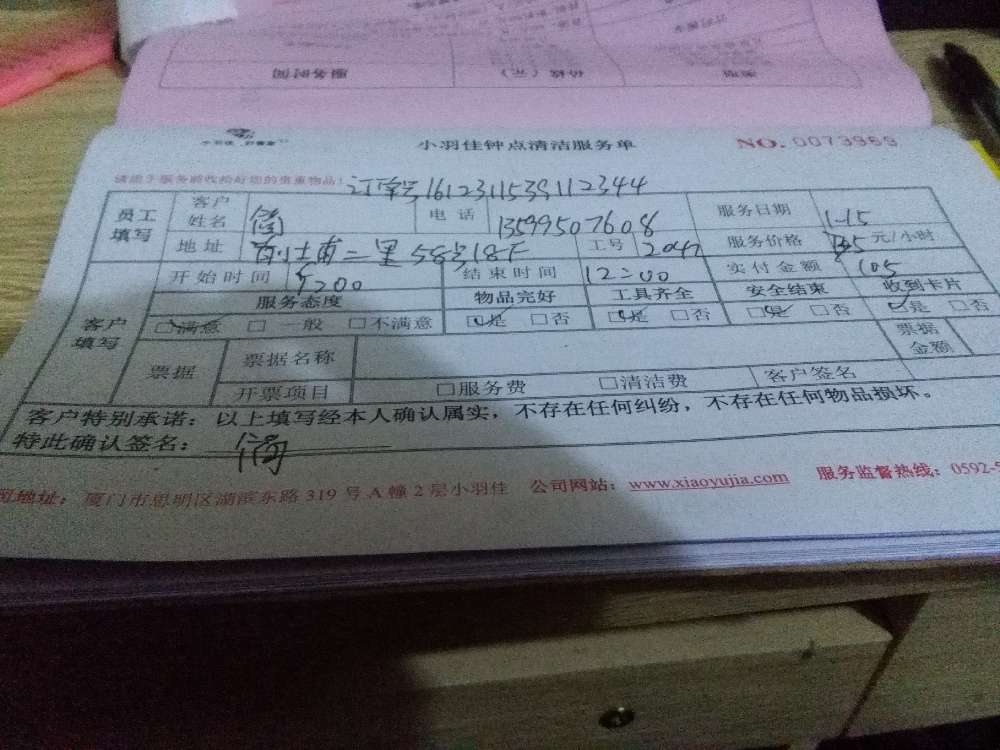 服务时间 价格（元）
小羽佳 好管家 小羽佳钟点清洁服务单 NO. 0073969
请您于服务前收拾好您的贵重物品! 订单号1612311539112344
员工填写 客户姓名 简 电话 13599507608 服务日期 1.15
地址 二里58号18F 工号 2047 服务价格 35 元/小时
开始时间 9:00 结束时间 12:00 实付金额 105
服务态度 物品完好 工具齐全 安全结束 收到卡片
客户填写 □满意 □一般 □不满意 □是 □否 □是 □否 □是 □否 □是 □否
票据 票据名称 票据金额
开票项目 □服务费 □清洁费 客户签名
客户特别承诺：以上填写经本人确认属实，不存在任何纠纷，不存在任何物品损坏。
特此确认签名： 简
地址：厦门市思明区湖滨东路 319 号 A 幢 2 层小羽佳 公司网站：www.xiaoyujia.com 服务监督热线：0592-5